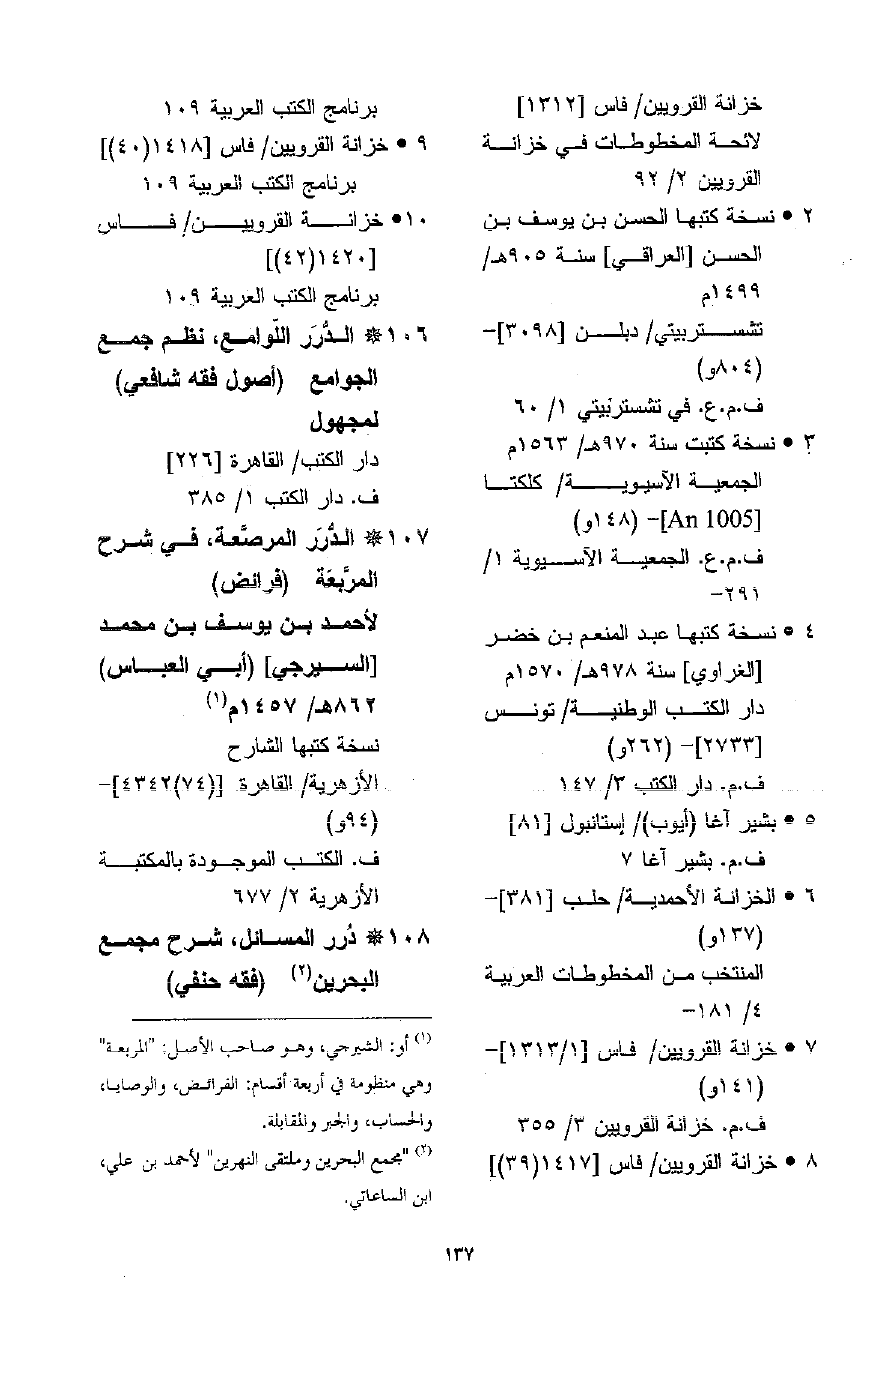 خزانة القرويين/ فاس [١٣١٢]
لائحة المخطوطات في خزانة
القرويين ٢/ ٩٢
٢ • نسخة كتبها الحسن بن يوسف بن
الحسن [العراقي] سنة ٩٠٥هـ/
١٤٩٩م
تشستربيتي/ دبلن [٣٠٩٨]-
(٨٠٤و)
ف.م.ع. في تشستربيتي ١/ ٦٠
٣ • نسخة كتبت سنة ٩٧٠هـ/ ١٥٦٣م
الجمعية الآسيوية/ كلكتا
[An 1005]- (١٤٨و)
ف.م.ع. الجمعية الآسيوية ١/
٢٩١-
٤ • نسخة كتبها عبد المنعم بن خضر
[الغراوي] سنة ٩٧٨هـ/ ١٥٧٠م
دار الكتب الوطنية/ تونس
[٢٧٣٣]- (٢٦٢و)
ف.م. دار الكتب ٣/ ١٤٧
٥ • بشير آغا (أيوب)/ إستانبول [٨١]
ف.م. بشير آغا ٧
٦ • الخزانة الأحمدية/ حلب [٣٨١]-
(١٣٧و)
المنتخب من المخطوطات العربية
٤/ ١٨١-
٧ • خزانة القرويين/ فاس [١٣١٣/١]-
(١٤١و)
ف.م. خزانة القرويين ٣/ ٣٥٥
٨ • خزانة القرويين/ فاس [١٤١٧(٣٩)]
برنامج الكتب العربية ١٠٩
٩ • خزانة القرويين/ فاس [١٤١٨(٤٠)]
برنامج الكتب العربية ١٠٩
١٠• خزانة القرويين/ فاس
[١٤٢٠(٤٢)]
برنامج الكتب العربية ١٠٩
١٠٦* الدُّرَر اللّوامع، نظم جمع
الجوامع (أصول فقه شافعي)
لمجهول
دار الكتب/ القاهرة [٢٢٦]
ف. دار الكتب ١/ ٣٨٥
١٠٧* الدُّرَر المرصَّعة، في شرح
المربَّعَة (فرائض)
لأحمد بن يوسف بن محمد
[السيرجي] (أبي العباس)
٨٦٢هـ/ ١٤٥٧م(١)
نسخة كتبها الشارح
الأزهرية/ القاهرة [(٧٤)٤٣٤٢]-
(٩٤و)
ف. الكتب الموجودة بالمكتبة
الأزهرية ٢/ ٦٧٧
١٠٨* دُرر المسائل، شرح مجمع
البحرين(٢) (فقه حنفي)
(١) أو: الشيرجي، وهو صاحب الأصل: "المربعة"
وهي منظومة في أربعة أقسام: الفرائض، والوصايا،
والحساب، والجبر والمقابلة.
(٢) "مجمع البحرين وملتقى النهرين" لأحمد بن علي،
ابن الساعاتي.
١٣٧